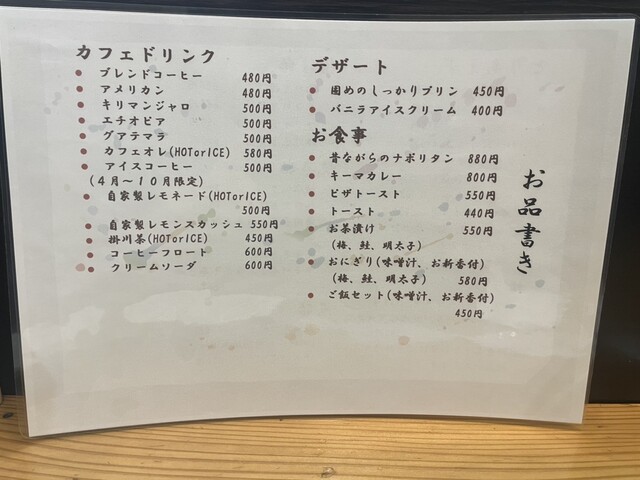 カフェドリンク
ブレンドコーヒー 480円
アメリカン 480円
キリマンジャロ 500円
エチオピア 500円
グアテマラ 500円
カフェオレ(HOTorICE) 580円
アイスコーヒー 500円
(4月～10月限定)
自家製レモネード(HOTorICE)
500円
自家製レモンスカッシュ 550円
掛川茶(HOTorICE) 450円
コーヒーフロート 600円
クリームソーダ 600円
デザート
固めのしっかりプリン 450円
バニラアイスクリーム 400円
お食事
昔ながらのナポリタン 880円
キーマカレー 800円
ピザトースト 550円
トースト 440円
お茶漬け 550円
(梅、鮭、明太子)
おにぎり(味噌汁、お新香付)
(梅、鮭、明太子) 580円
ご飯セット(味噌汁、お新香付)
450円
お品書き